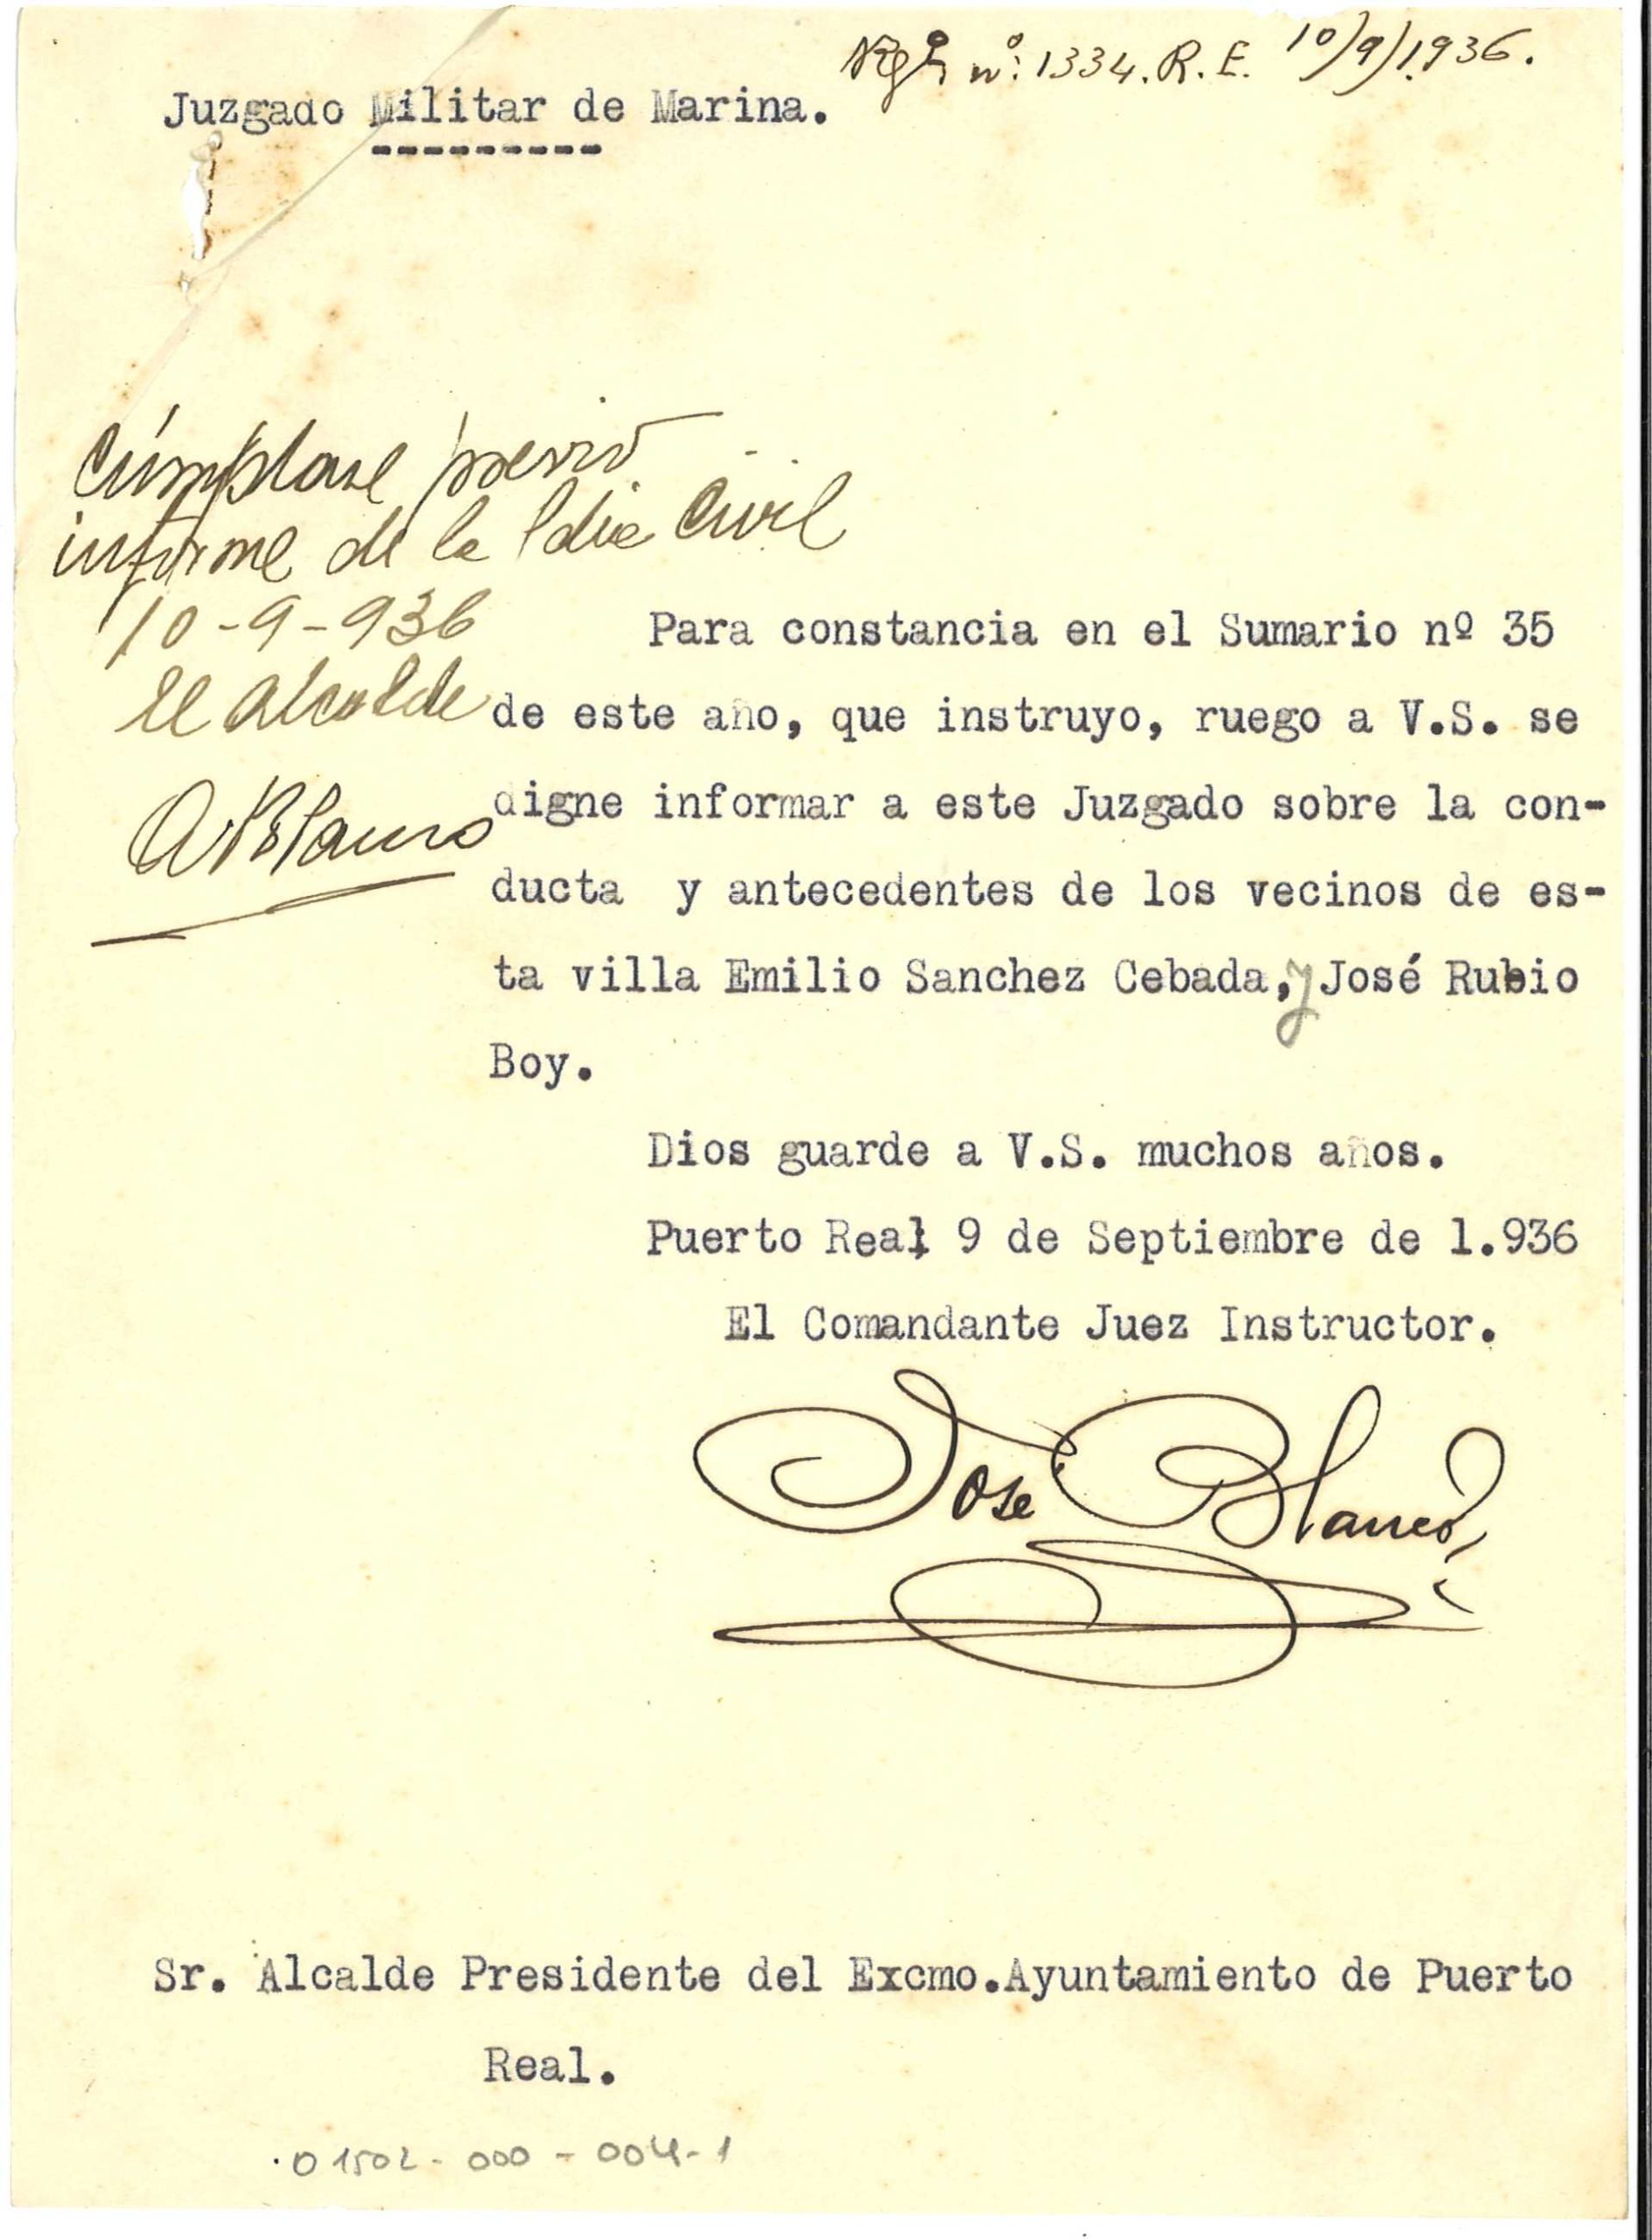 nº: 1334. R. E. 10/9/1.936.
Juzgado Militar de Marina.
---------
Cúmplase previo
informe de la Gdia Civil
10-9-936
El Alcalde
Para constancia en el Sumario nº 35
de este año, que instruyo, ruego a V.S. se
digne informar a este Juzgado sobre la con-
ducta y antecedentes de los vecinos de es-
ta villa Emilio Sanchez Cebada, y José Rubio
Boy.
Dios guarde a V.S. muchos años.
Puerto Real 9 de Septiembre de 1.936
El Comandante Juez Instructor.
José Blanco
Sr. Alcalde Presidente del Excmo.Ayuntamiento de Puerto
Real.
01502-000-004-1